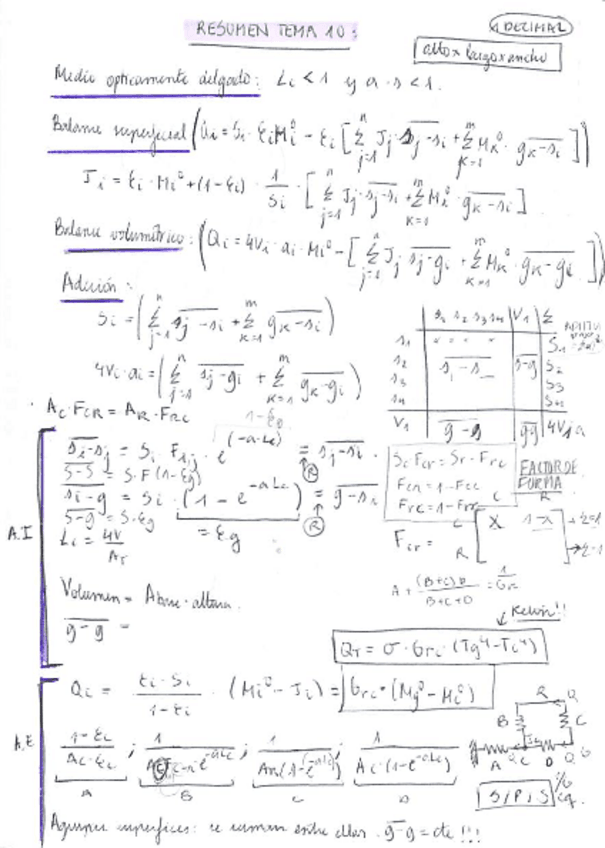 RESUMEN TEMA 10:
1 DECIMAL
alto x largo x ancho
Medio opticamente delgado: Lc < 1 y a·s < 1.
Balance superficial (Qi = Si · εi Mi⁰ - εi [ Σ_{j=1}^{n} Jj · \overline{sj-si} + Σ_{K=1}^{m} Mk⁰ · \overline{gk-si} ])
Ji = εi · Mi⁰ + (1-εi) · 1/Si · [ Σ_{j=1}^{n} Jj · \overline{sj-si} + Σ_{K=1}^{m} Mk⁰ · \overline{gk-si} ]
Balance volumétrico: (Qi = 4Vi · ai · Mi⁰ - [ Σ_{j=1}^{n} Jj \overline{sj-gi} + Σ_{K=1}^{m} Mk⁰ · \overline{gk-gi} ])
Adición:
Si = ( Σ_{j=1}^{n} \overline{sj-si} + Σ_{K=1}^{m} \overline{gk-si} )
4Vi·ai = ( Σ_{j=1}^{n} \overline{sj-gi} + Σ_{K=1}^{m} \overline{gk-gi} )
s1 s2 s3 s4 V1 Σ
s1 S1
s2 \overline{s-s} \overline{s-g} S2
s3 S3
s4 S4
V1 \overline{g-s} \overline{g-g} 4Vja
Ac·Fcr = Ar·Frc
A.I
\overline{si-sj} = Si · Fij · e^(-a·Lc) = \overline{sj-si}
\overline{s-s} = S·F(1-εg)
(R)
\overline{si-g} = Si · (1 - e^-aLc) = \overline{g-si}
\overline{s-g} = S·εg
= εg
(R)
Lc = 4V/Ar
Sc Fcr = Sr · Frc
Fcr = 1-Fcc
Frc = 1-Frr
FACTOR DE
FORMA
C R
Fcr = C [ X 1-X ] → Σ=1
R → Σ=1
A + (B+C)D / B+C+D = 1/Grc
Volumen = Abase · altura
\overline{g-g} =
Kelvin!!
QT = σ · Grc · (Tg⁴ - Tc⁴)
A.E
Qi = εi · Si / 1-εi · (Mi⁰ - Ji) = Grc · (Mg⁰ - Mc⁰)
1-εc / Ac·εc ; 1 / Ar(1-e^-aLc) ; 1 / Ac·(1-e^-aLc)
A B C D
R B C A D
S/P/S
Agrupar superficies: se suman entre ellas. \overline{g-g} = cte !!!